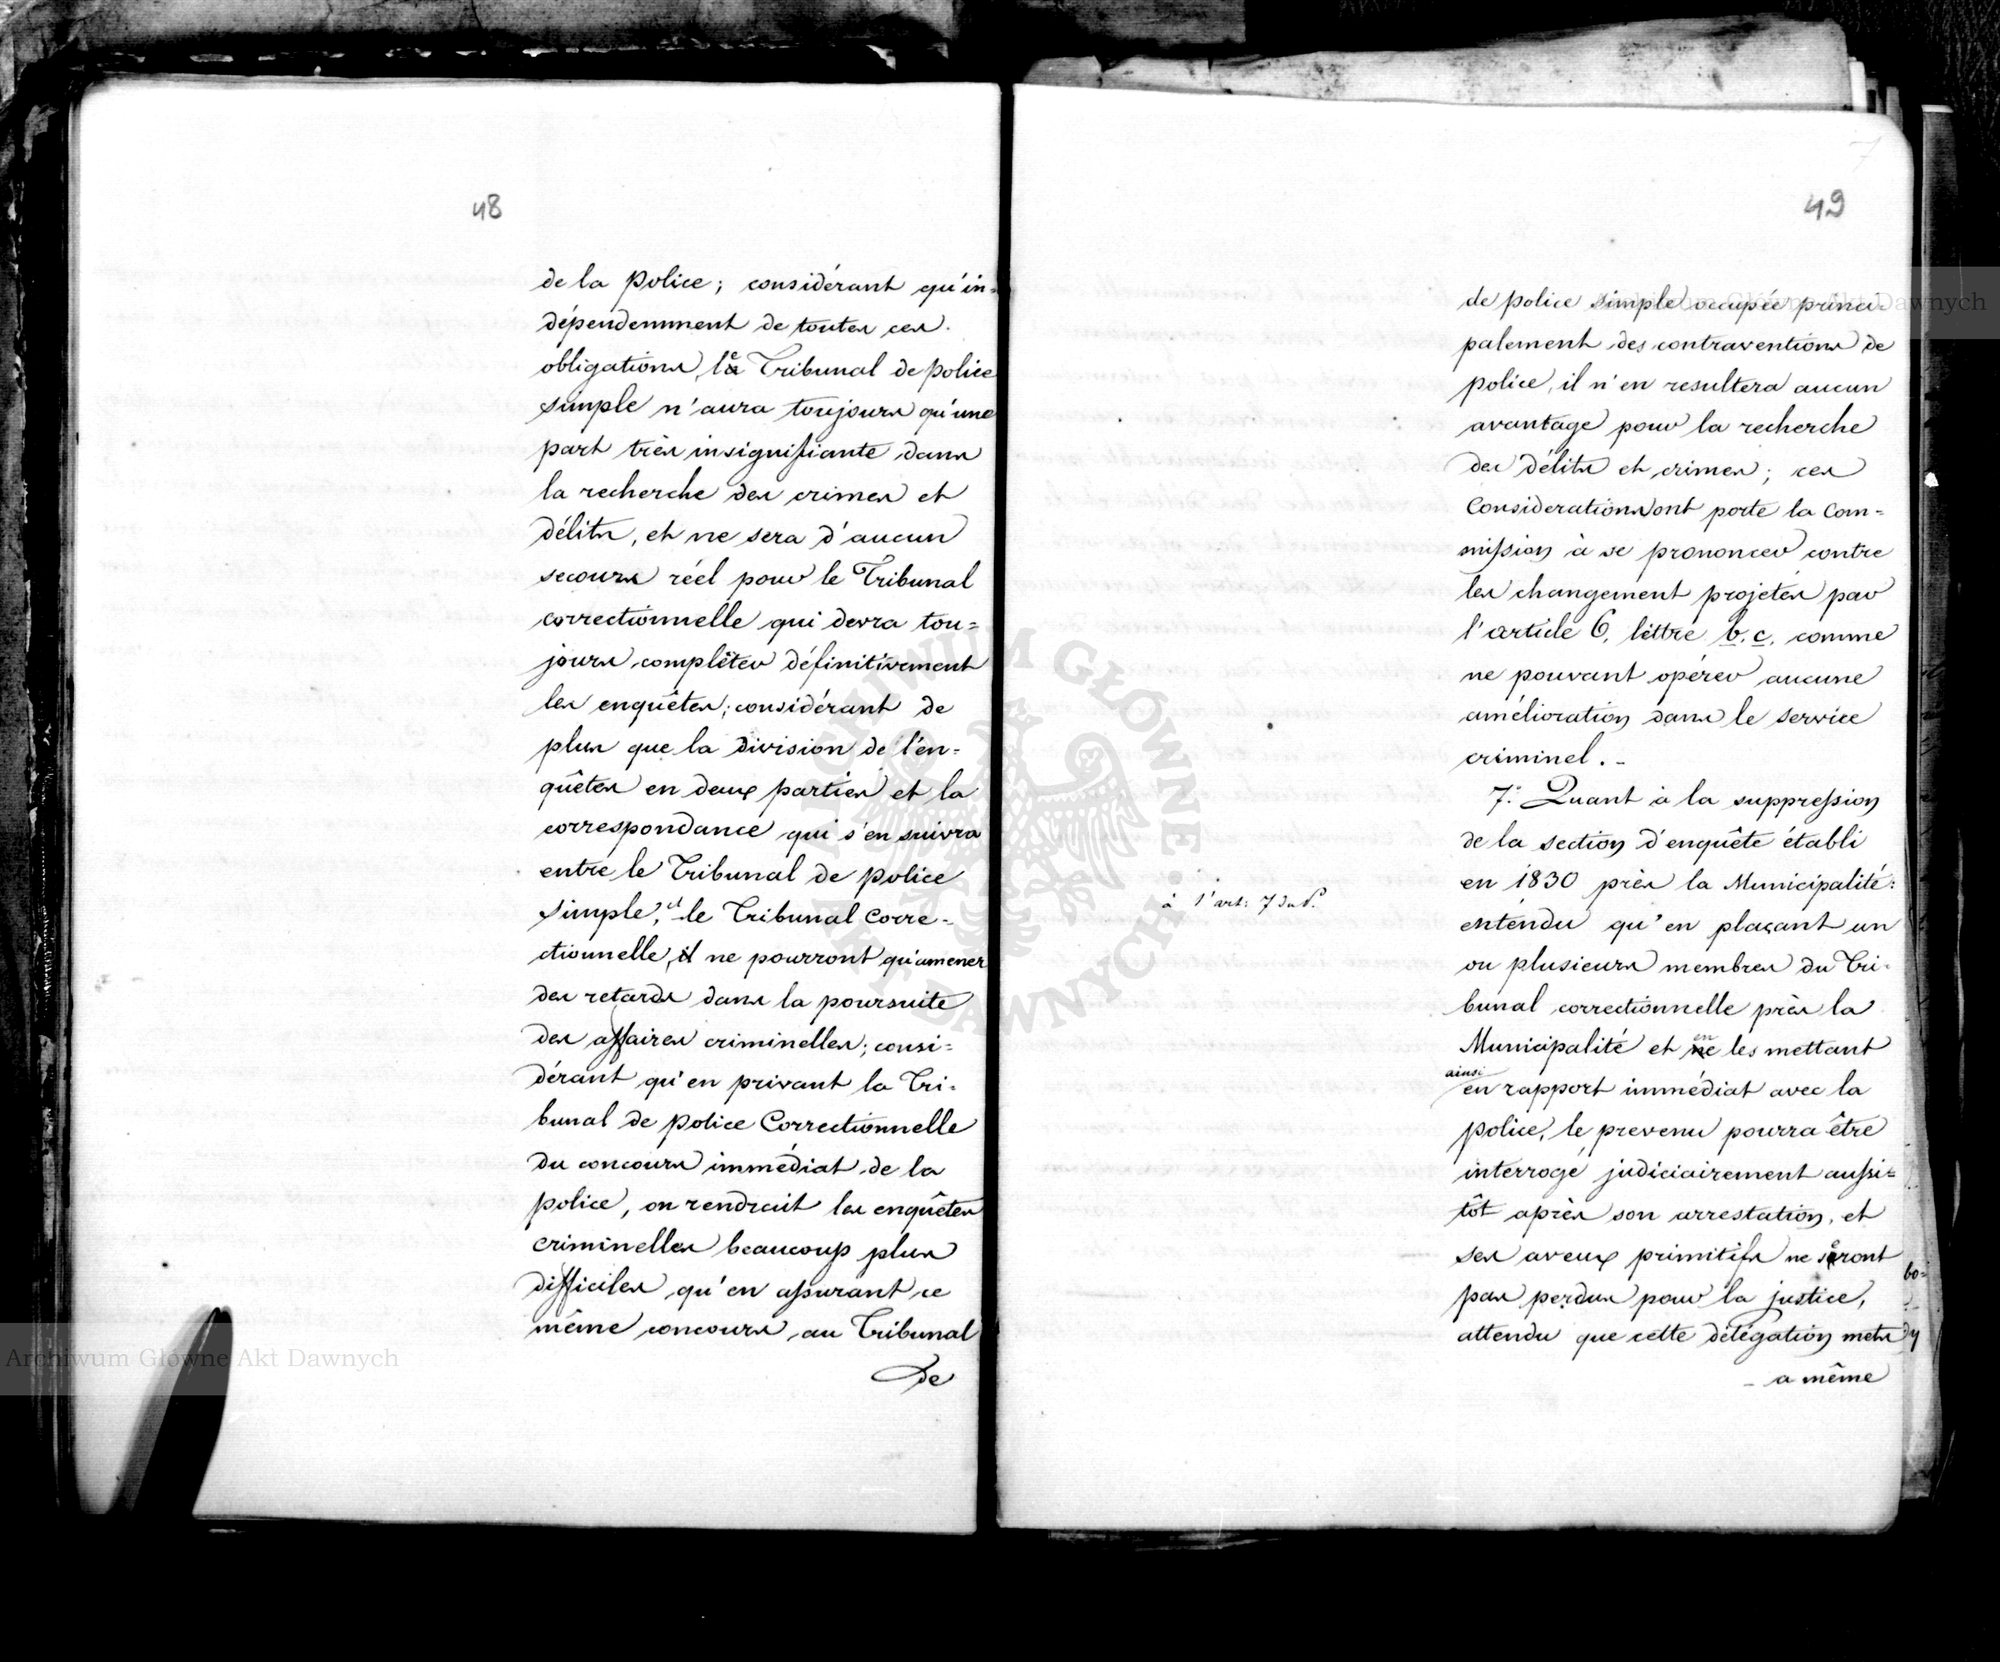 48
de la Police; considérant qu'in-
dépendemment de toutes ces
obligations, le Tribunal de police
simple n'aura toujours qu'une
part très insignifiante dans
la recherche des crimes et
délits, et ne sera d'aucun
secours réel pour le Tribunal
correctionnelle qui devra tou-
jours complêter définitivement
les enquêtes; considérant de
plus que la division de l'en-
quêtes en deux parties et la
correspondance qui s'en suivra
entre le Tribunal de police
simple, et le Tribunal Corre-
ctionnelle, ne pourront qu'amener
des retards dans la poursuite
des affaires criminelles; consi-
dérant qu'en privant la Tri-
bunal de police Correctionnelle
du concours immédiat de la
police, on rendrait les enquêtes
criminelles beaucoup plus
difficiles qu'en assurant ce
même concours au Tribunal
de
49
de police simple occupée princi-
palement des contraventions de
police, il n'en resultera aucun
avantage pour la recherche
des délits et crimes; ces
Considerations ont porte la Com-
mission à se prononcer contre
les changement projetés par
l'article 6, lettre b. c. comme
ne pouvant opérer aucune
amélioration dans le service
criminel. -
à l'art: 7 du P.
7.° Quant à la suppression
de la section d'enquête établi
en 1830 près la Municipalité:
entendu qu'en plaçant un
ou plusieurs membres du Tri-
bunal correctionnelle près la
Municipalité et en les mettant
ainsi en rapport immédiat avec la
police, le prevenu pourra être
interrogé judiciairement aussi-
tôt après son arrestation, et
ses aveux primitifs ne seront
pas perdus pour la justice,
attendu que cette délégation mets
a même
Archiwum Główne Akt Dawnych
Archiwum Główne Akt Dawnych
ARCHIWUM GŁÓWNE AKT DAWNYCH